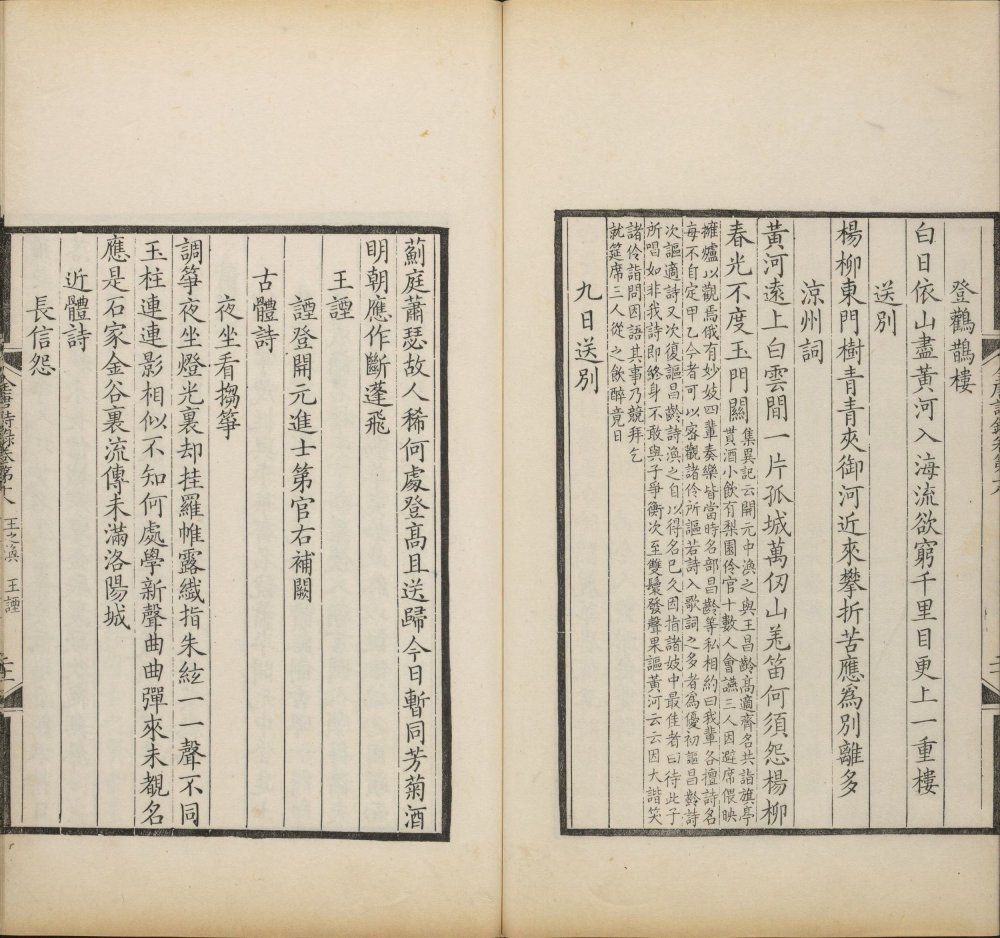 登鸛鵲樓
白日依山盡黃河入海流欲窮千里目更上一重樓
送別
楊柳東門樹青青夾御河近來攀折苦應為別離多
涼州詞
黃河遠上白雲間一片孤城萬仞山羌笛何須怨楊柳
春光不度玉門關
集異記云開元中渙之與王昌齡高適齊名共詣旗亭
貰酒小飲有梨園伶官十數人會讌三人因避席偎映
擁爐以觀焉俄有妙妓四輩奏樂皆當時名部昌齡等私相約曰我輩各擅詩名
每不自定甲乙今者可以密觀諸伶所謳若詩入歌詞之多者為優初謳昌齡詩
次謳適詩又次復謳昌齡詩渙之自以得名已久因指諸妓中最佳者曰待此子
所唱如非我詩即終身不敢與子爭衡次至雙鬟發聲果謳黃河云云因大諧笑
諸伶詣問因語其事乃競拜乞
就筵席三人從之飲醉竟日
九日送別
薊庭蕭瑟故人稀何處登高且送歸今日暫同芳菊酒
明朝應作斷蓬飛
王諲
諲登開元進士第官右補闕
古體詩
夜坐看搊箏
調箏夜坐燈光裏却挂羅帷露纖指朱絃一一聲不同
玉柱連連影相似不知何處學新聲曲曲彈來未覩名
應是石家金谷裏流傳未滿洛陽城
近體詩
長信怨
全唐詩錄卷第十八
王之渙 王諲